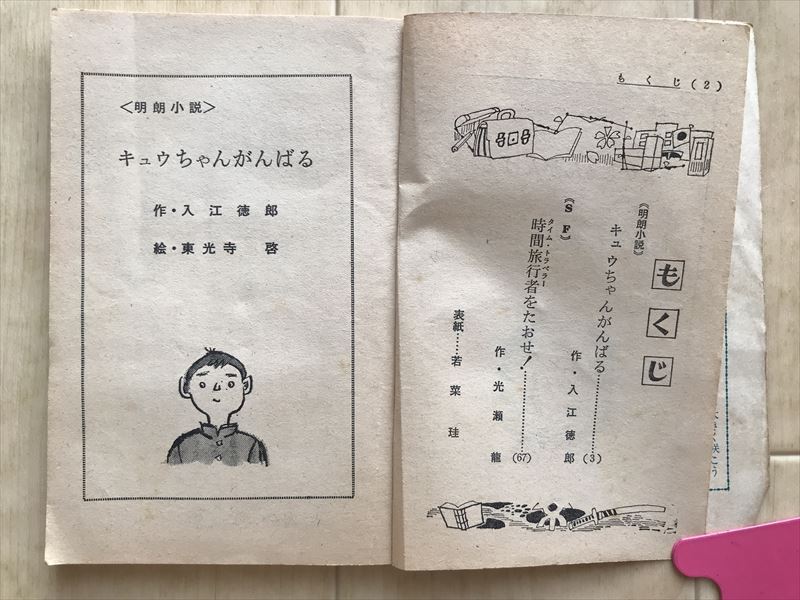 もくじ(2)
もくじ
《明朗小説》
キュウちゃんがんばる………作・入江徳郎(3)
《SF》
時間旅行者をたおせ!………作・光瀬龍(67)
タイム・トラベラー
表紙……若菜珪
<明朗小説>
キュウちゃんがんばる
作・入江徳郎
絵・東光寺啓